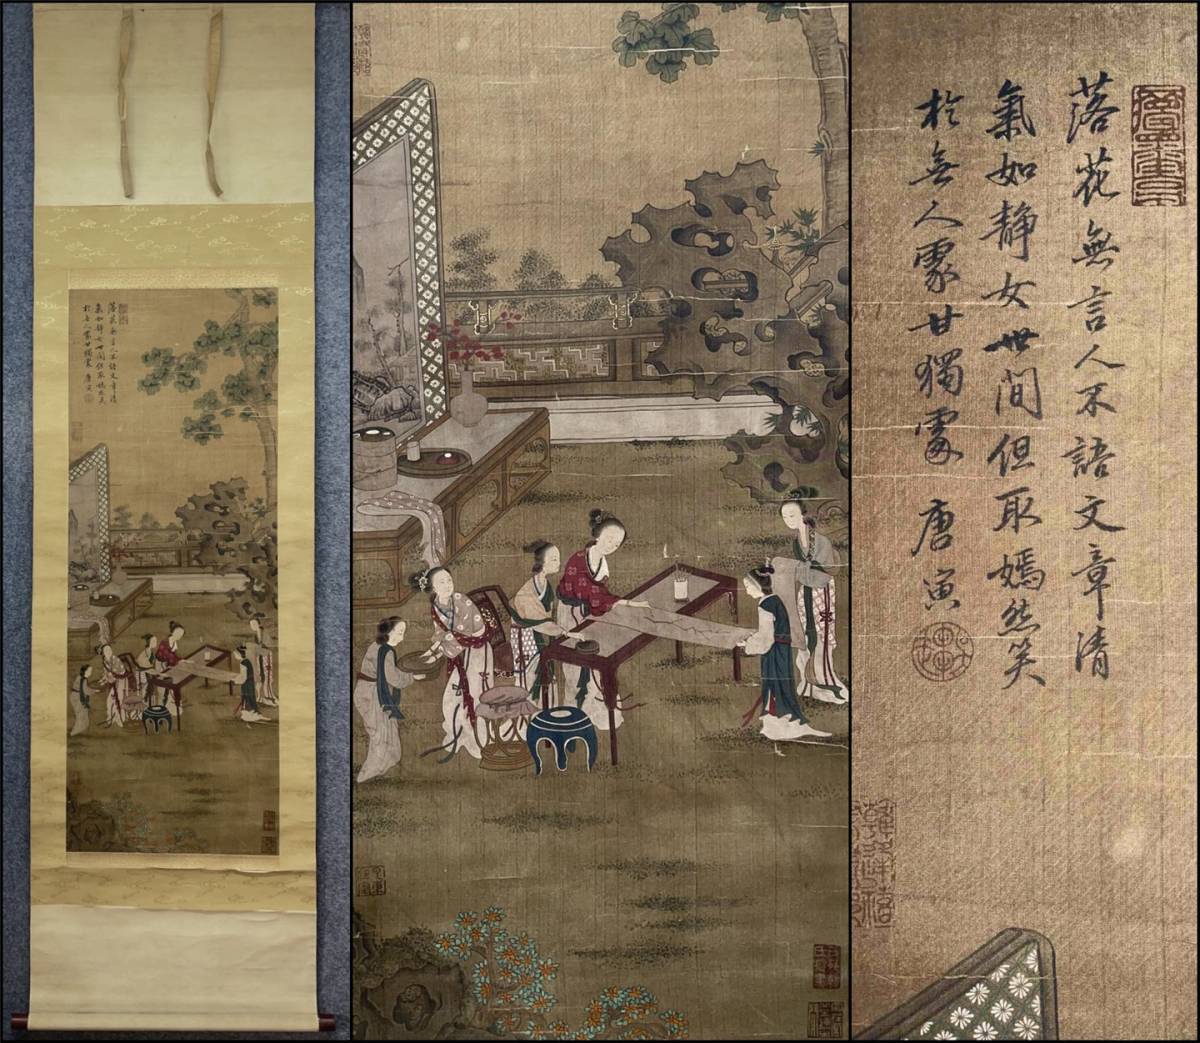 落花無言人不語文章清
氣如靜女世間但取嫣然笑
於無人處甘獨處 唐寅